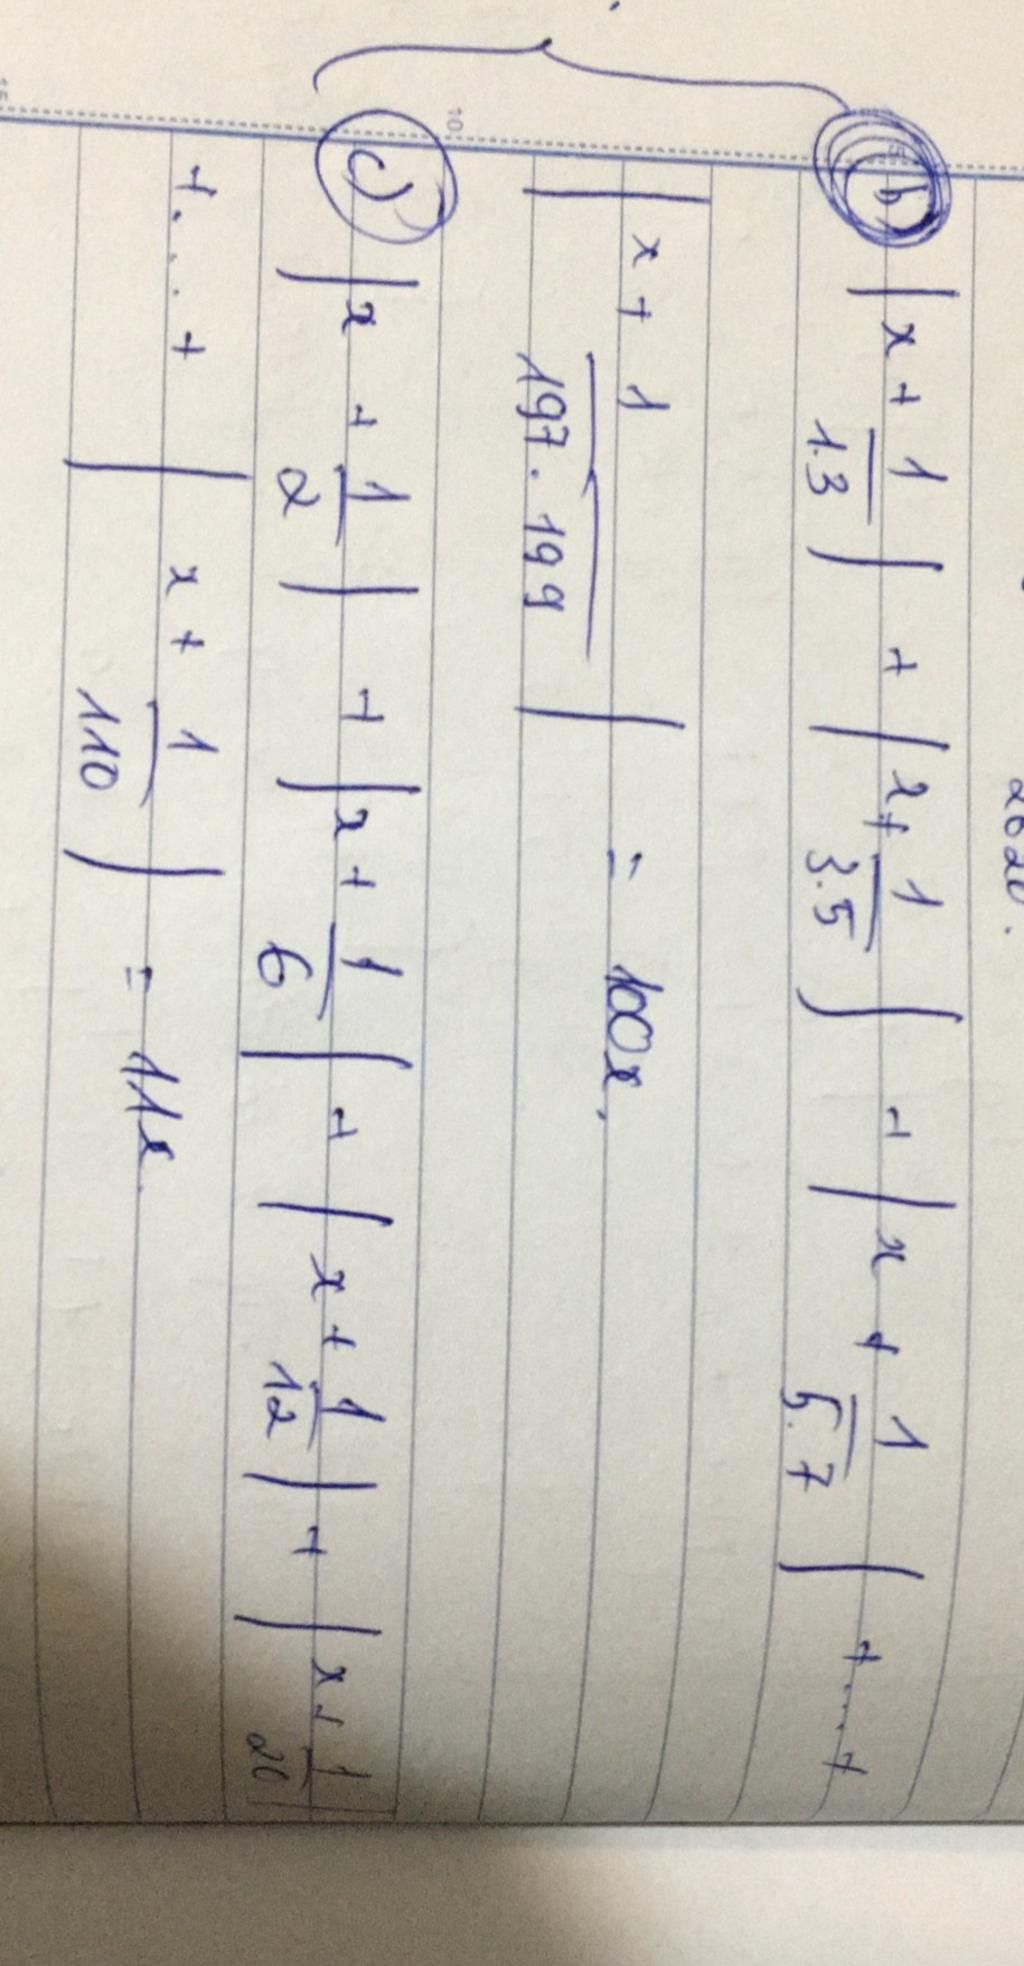 2020.
b) |x + 1/1.3| + |x + 1/3.5| + |x + 1/5.7| + .... +
|x + 1/197.199| = 100x.
c) |x + 1/2| + |x + 1/6| + |x + 1/12| + |x + 1/20|
+ .... + |x + 1/110| = 11x.